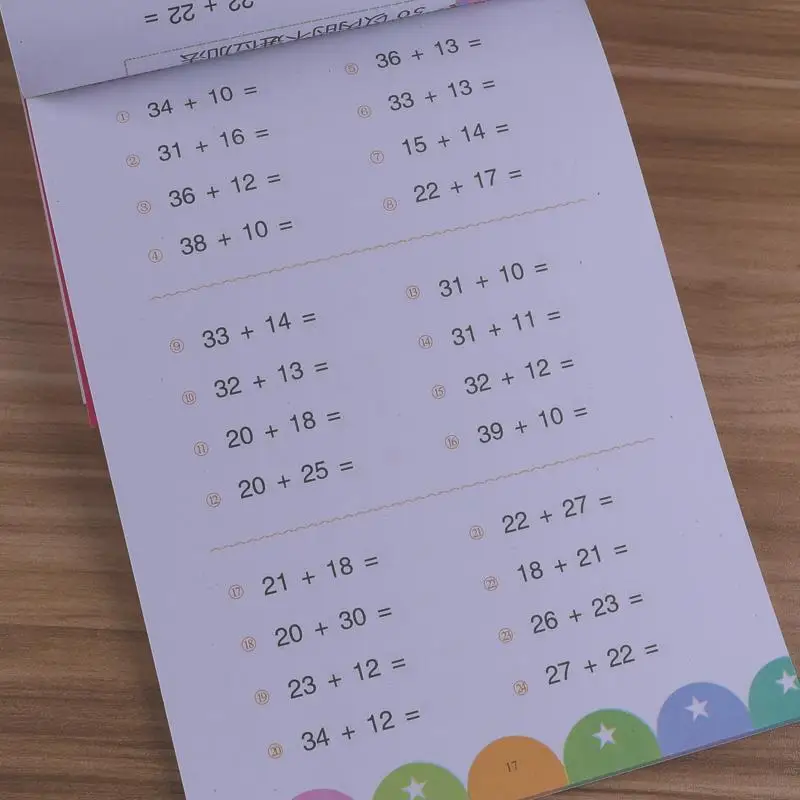 22 + 22 =
50以内的不进位加法
① 34 + 10 =
② 31 + 16 =
③ 36 + 12 =
④ 38 + 10 =
⑤ 36 + 13 =
⑥ 33 + 13 =
⑦ 15 + 14 =
⑧ 22 + 17 =
⑨ 33 + 14 =
⑩ 32 + 13 =
⑪ 20 + 18 =
⑫ 20 + 25 =
⑬ 31 + 10 =
⑭ 31 + 11 =
⑮ 32 + 12 =
⑯ 39 + 10 =
⑰ 21 + 18 =
⑱ 20 + 30 =
⑲ 23 + 12 =
⑳ 34 + 12 =
㉑ 22 + 27 =
㉒ 18 + 21 =
㉓ 26 + 23 =
㉔ 27 + 22 =
17